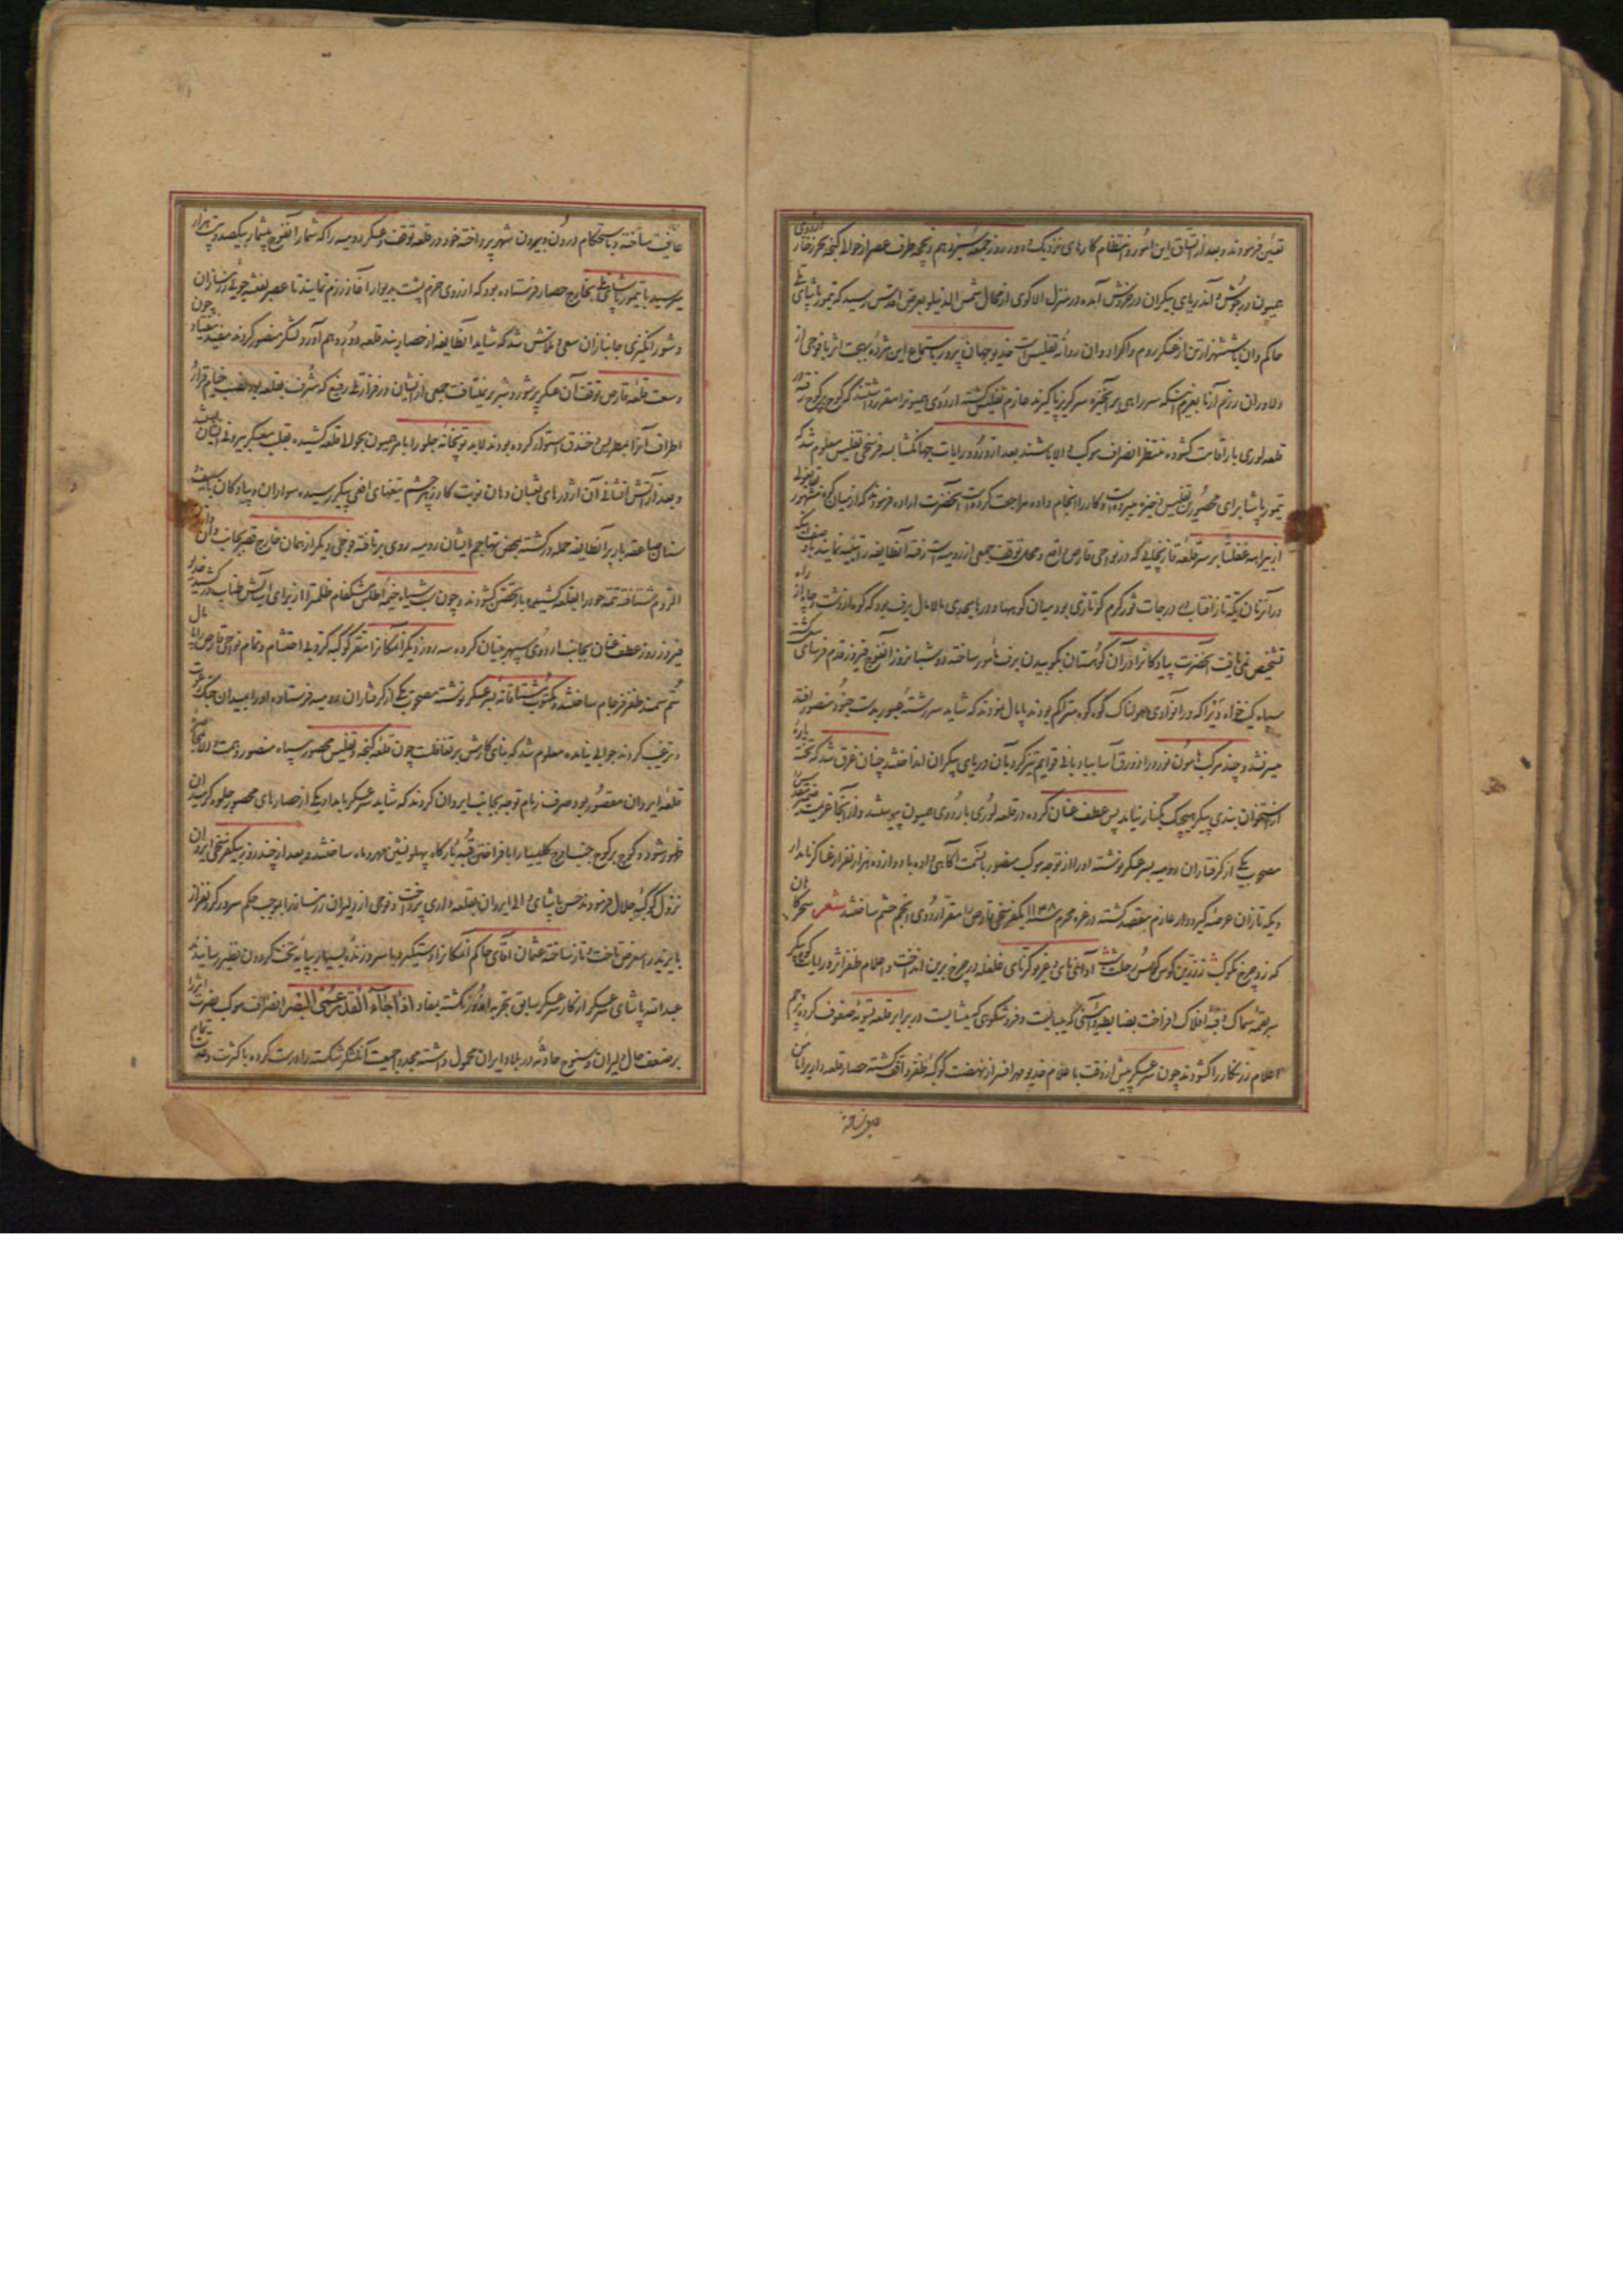 تعیین فرمودند و بعد از اتساق این امور و انتظام کارهای نزدیک و دور روز جمعه سیزدهم ذیحجه طرف عصر از حوالی گنجه بحر زخار اردوی
همیون در جوش و آن دریای بیکران در خروش آمده در منزل الاکوی از محال شمس الدینلو بعرض اقدس رسید که تیمور پاشای ملی
حاکم وان با ششهزار تن از عسکر روم و اکراد وان روانه تفلیس است خدیو جهان پرور باستماع این مژده بهجت اثر با فوجی از
دلاوران رزم آزما بعزم اینکه سر راهی بر آنخیره سر گریز پا گیرند عازم تفلیس گشته اردوی همیونرا مقرر داشتند که کوچ بر کوچ رفته در
قلعه لوری بار اقامت گشوده منتظر انصراف موکب والا باشند بعد از ورود رایات جهانگشا بسه فرسخی تفلیس معلوم شد که
تیمور پاشا برای محصورین تفلیس ذخیره میبرده است و کار را انجام داده مراجعت کرده است آنحضرت اراده فرمودند که از میان کوه مشهور
از بیراهه غفلتا بر سر قلعه قازنچائی که در نواحی قارص واقع و محل توقف جمعی از رومیه است رفته آنطایفه را تنبیه نمایند با وصف اینکه
در آنزمان یکه تاز آفتاب در درجات ثور گرم گو تازی بود میان کوهها و درها بحدی مالامال برف بود که کوه از دشت و چاه از راه
تشخیص نمی یافت آنحضرت پیادگانرا در آن کوهستان بکوبیدن برف مامور ساخته دو شبانروز آنفوج فیروز قدم فرسای گشته
سپاه کینه خواه برفرا که در آنوادی هولناک کوه کوه متراکم بودند پامال نمودند که شاید سررشته عبور بدست جنود منصور افتد
میسر نشد و چند مرکب هامون نورد را زورق آسا ببادبانی قوایم تیزگرد بآن دریای بیکران انداختند چنان غرق شد که تخته پاره
از استخوان بندی پیکر هیچیک بکنار نیامد پس عطف عنان کرده در قلعه لوری باردوی همیون پیوستند و از آنجا عزیمت
مصحوب یکی از گرفتاران رومیه بسرعسکر نوشته او را از توجه موکب منصور بآنسمت آگاهی داده با دوازده هزار نفر از عساکر نامدار
و یکه تازان عرصه گیر و دار عازم مقصد گشته در غره محرم ۱۱۴۸ یکفرسخی قارص را مقر اردوی انجم حشم ساختند شعر سحرگاهان
که زد چرخ نکوکیش زرین کوس کوس حلت آوای نای و نفیر و کرنای غلغله در چرخ برین انداخت و اعلام ظفر اثر و رایات کوه پیکر
سر بقمه سماک و قبه افلاک افراخت بضابطه و آئینی که میبایست و فر و شکوهی که میشایست در برابر قلعه تسویه صفوف کرده پرچم
اعلام زرنگار را گشودند چون سرعسکر پیش از وقت باعلام خدیو مهر افسر از نهضت کوکبه ظفر واقف گشته حصار قلعه را
عافیت ساخته و باستحکام درون و بیرون شهر پرداخته خود در قلعه توقف و عسکر رومیه را که شمار آنفوج بیشمار بیکصد و بیست هزار
میرسید با تیمور پاشای ملی بخارج حصار فرستاده بود که از روی حزم پشت بدیوار آغاز رزم نمایند تا عصر نقشه جوئی رزمسازان
و شور انگیزی جانبازان سعی و تلاش شد که شاید آنطایفه از حصار بند قلعه دور و بهم آورد لشکر منصور گردند مفید نیفتاد چون
وسعت قلعه قارص توقف آن عسکر پر شور و شر بر نمیتافت جمعی از ایشان در فراز تلی رفیع که مشرف بقلعه بود نصب خیام قرار
اطراف آنرا بمطریس و خندق استوار کرده بودند لابد توپخانه جلو را بامر همیون بحوالی قلعه کشیده بقلب معسکر بیرونی ایشان بستند
و بعد از آتش افشانی آن اژدرهای ثعبان دهان نوبت کارزار بچشم تیغهای افعی پیکر رسیده سواران و پیادگان با سیف
سنان صاعقه بار بر آنطایفه حمله ور گشته بمحض تهاجم ایشان رومیه روی بر تافته فوجی دیگر از همان خارج قصبه بجانب وان
الروم شتافته تتمه خود را بقلعه کشیده باب تحصن گشودند و چون شب سیاه خیمه اطلس مشکفام ظلمترا از برای آسایش طناب در کشید خدیو
فیروز روز عطف عنان بجانب اردوی سپهر بنیان کرده سه روز دیگر آنمکانرا مقر کوکبه گردون احتشام و تمام نواحی قارص را پامال
سم سمند ظفر فرجام ساختند و مکتوب مشتاقانه بسرعسکر نوشته مصحوب یکی از گرفتاران رومیه فرستاده او را بمیدان جنگ دعوت
و ترغیب کردند جوابی نیامده معلوم شد که بنای کارش بر تغافلست چون قلعه گنجه و تفلیس محصور سپاه منصور و همت والا
قلعه ایروان مقصور بود صرف زمام توجه بجانب ایروان کردند که شاید سرعسکر بامداد یکی از حصارهای محصور جلوه گر میدان
ظهور شود و کوچ بر کوچ جنب اوچ کلیسا را بافراختن قبه بارگاه پهلو نشین مهر و ماه ساختند و بعد از چند روز بیکفرسخی ایروان
نزول کوکبه جلال فرمودند حسن پاشای والی ایروان بقلعه داری پرداخت و فوجی از دلیران رزمساز را بموجب حکم سرور گردنفراز
بایزید را معرض تاخت و تاز ساخته عثمان آقای حاکم آنمکانرا دستگیر و با سر و زنده بسیار بپایه تخت گردون نظیر رسانیدند
عبدالله پاشای سرعسکر از کار سرعسکر سابق تجربه اندوز نگشته بمفاد اذا جاء القدر عمی البصر انصراف موکب نصرت اثر را
بر ضعف حال دلیران و سنوح حادثه در بلاد ایران محمول داشته مجددا جمعیت آنلشکر شکسته را درست کرده با کثرت و عدت تمام